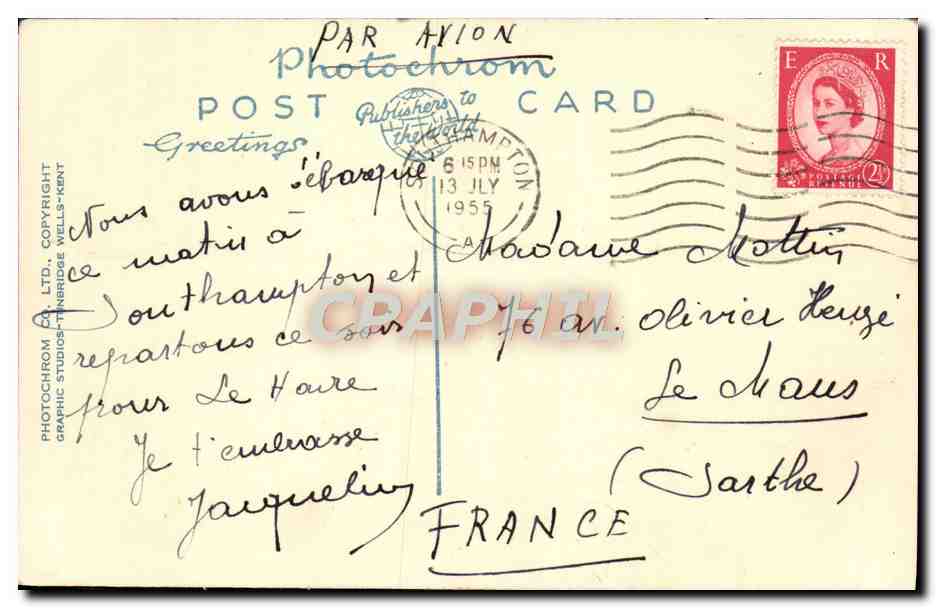 PAR AVION
Photochrom
POST CARD
Publishers to
the World
Greetings
SOUTHAMPTON
6 15 PM
13 JLY
1955
A
E R
POSTAGE
REVENUE
2½
PHOTOCHROM CO. LTD., COPYRIGHT
GRAPHIC STUDIOS-TUNBRIDGE WELLS-KENT
Nous avons débarqué
ce matin à
Southampton et
repartons ce soir
pour Le Havre
Je t'embrasse
Jacqueline
Madame
76 av. Olivier Heuzé
Le Mans
(Sarthe)
FRANCE
CPAPHIL